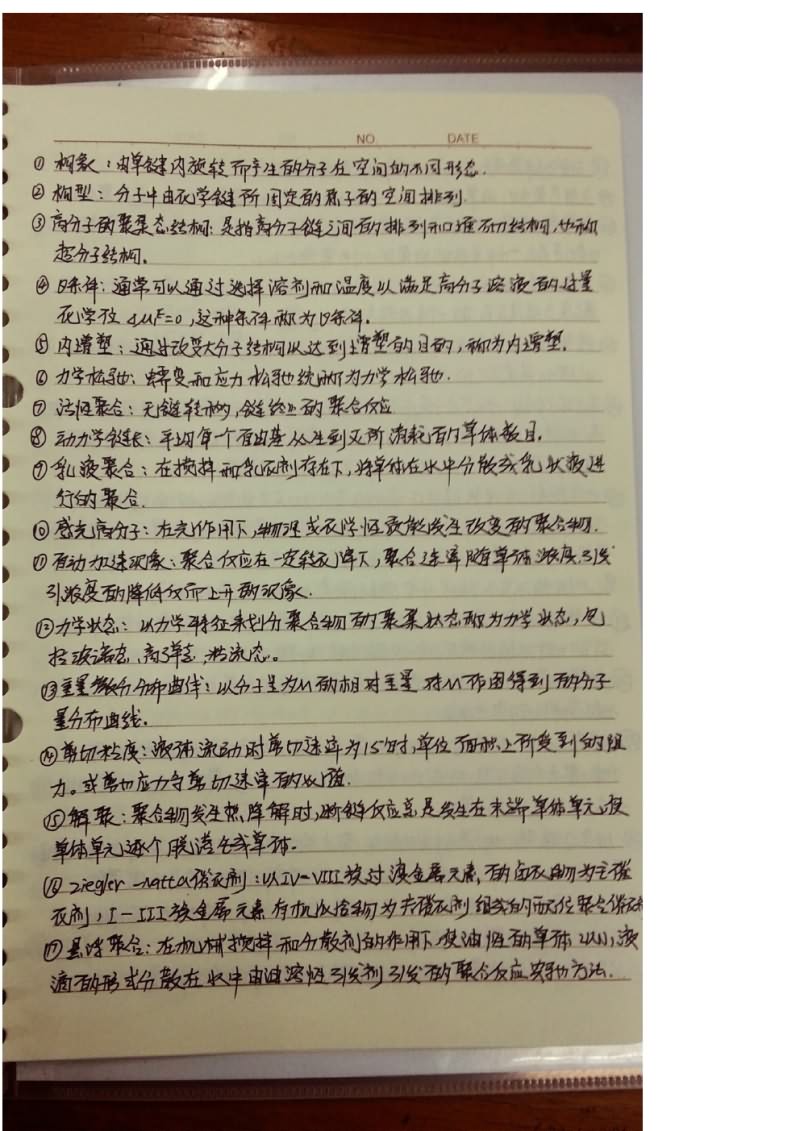 NO. DATE
① 构象：由单键内旋转而产生的分子在空间的不同形态.
② 构型：分子中由化学键所固定的原子的空间排列.
③ 高分子的聚集态结构：是指高分子链之间的排列和堆砌结构，也称
超分子结构。
④ θ条件：通常可以通过选择溶剂和温度以满足高分子溶液的过量
化学位 Δμᴱ=0，这种条件称为θ条件.
⑤ 内增塑：通过改变大分子结构以达到增塑的目的，称为内增塑.
⑥ 力学松弛：蠕变和应力松弛统称为力学松弛.
⑦ 活性聚合：无链转移，链终止的聚合反应
⑧ 动力学链长：平均每个自由基从生到灭所消耗的单体数目.
⑨ 乳液聚合：在搅拌和乳化剂存在下，将单体在水中分散成乳状液进
行的聚合.
⑩ 感光高分子：在光作用下，物理或化学性能发生改变的聚合物.
⑪ 自动加速现象：聚合反应在一定转化率下，聚合速率随单体浓度，引发
引浓度的降低反而上升的现象.
⑫ 力学状态：以力学特征来划分聚合物的聚集状态称为力学状态，包
括玻璃态、高弹态、粘流态。
⑬ 重量分布曲线：以分子量为M的相对重量对M作图得到的分子
量分布曲线.
⑭ 剪切粘度：液体流动时剪切速率为1s⁻¹时，单位面积上所受到的阻
力。或剪切应力与剪切速率的比值.
⑮ 解聚：聚合物发生热降解时，断链反应总是发生在末端单体单元，使
单体单元逐个脱落生成单体.
⑯ ziegler-natta催化剂：以IV-VIII族过渡金属元素的卤化物为主催
化剂，I-III族金属元素有机化合物为共催化剂组成的配位聚合催化剂
⑰ 悬浮聚合：在机械搅拌和分散剂的作用下，使油性的单体以小液
滴的形式分散在水中由油溶性引发剂引发的聚合反应实施方法.